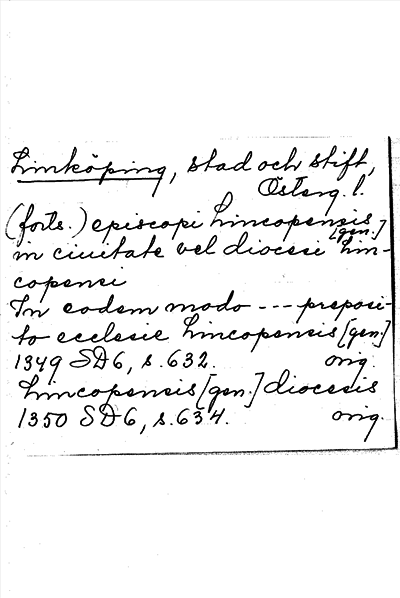 Linköping, stad och stift,
Österg. l.
(forts.) episcopi Lincopensis
[gen.]
in ciuitate vel diocesi Lin-
copensi
In eodem modo --- preposi-
to ecclesie Lincopensis [gen]
1349 SD6, s. 632. orig.
Lincopensis [gen.] diocesis
1350 SD6, s. 634. orig.